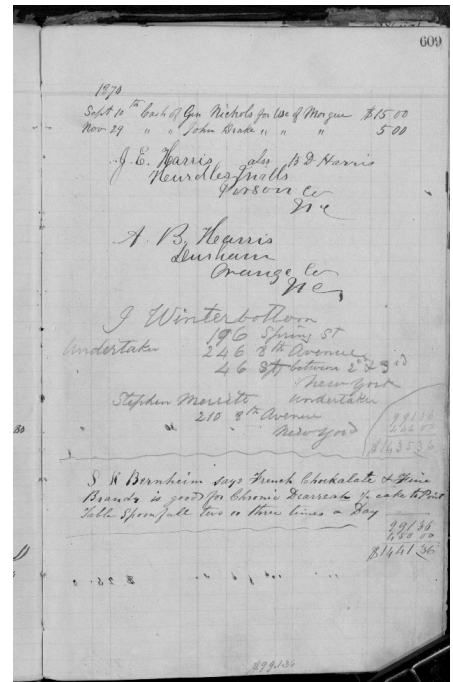 609
1870
Sept 10th Cash of Gen Nichols for Use of Morgue $15 00
Nov 29 " " John Drake " " " 5 00
J. E. Harris also B D Harris
Hurdles Mills
Person Co
N C
A. B. Harris
Durham
Orange Co
N C
J Winterbottom
196 Spring St
Undertaker 246 8th Avenue
46 3 St between 2d & 3rd
New York
Stephen Merritt Undertaker
210 8th Avenue
New York
991 36
$1435 36
S W Bernheim says French Chockalate & Fine
Brandy is good for Chronic
Table Spoonfull two or three times a Day
991 36
450 00
$1441 36
$991.36